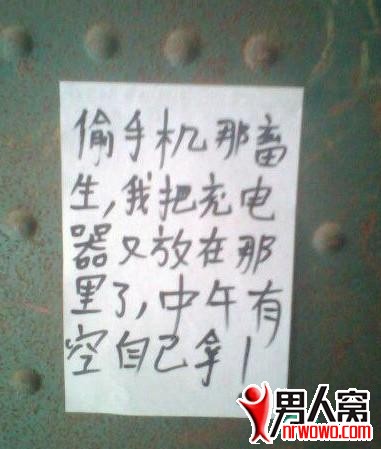 偷手机那畜
生,我把充电
器又放在那
里了,中午有
空自己拿!
男人窝
nrwowo.com